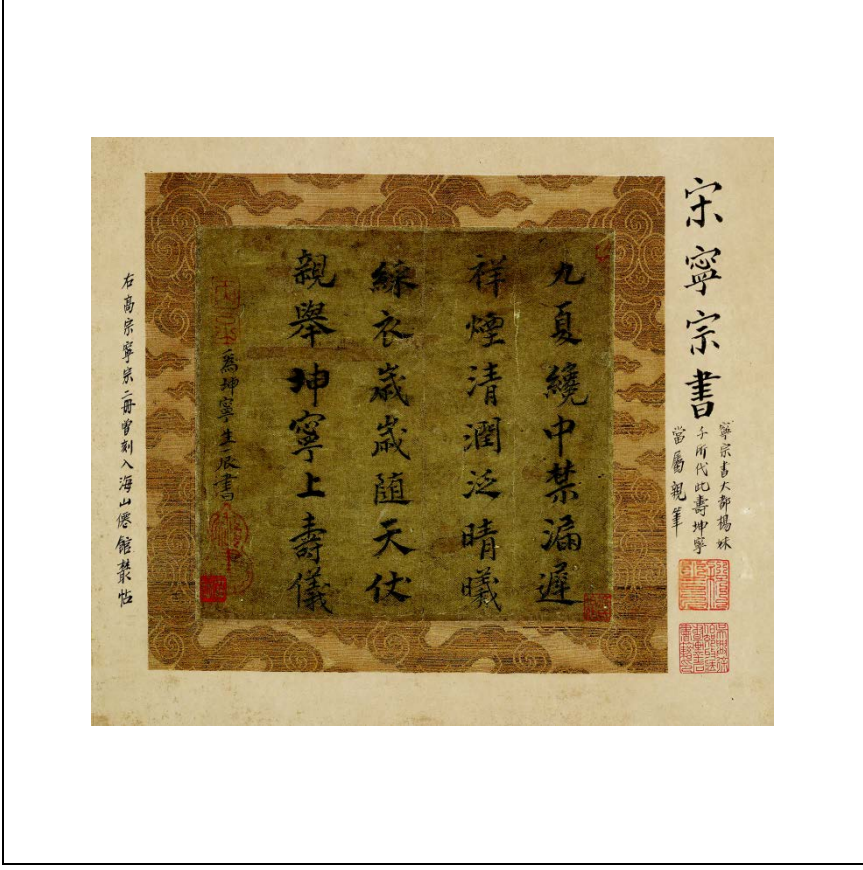 宋寧宗書
寧宗書大都楊妹
子所代此壽坤寧
當屬親筆
九夏繞中禁漏遲
祥煙清潤泛晴曦
綵衣歲歲隨天仗
親舉坤寧上壽儀
為坤寧生辰書
右高宗寧宗二冊曾刻入海山僊館叢帖